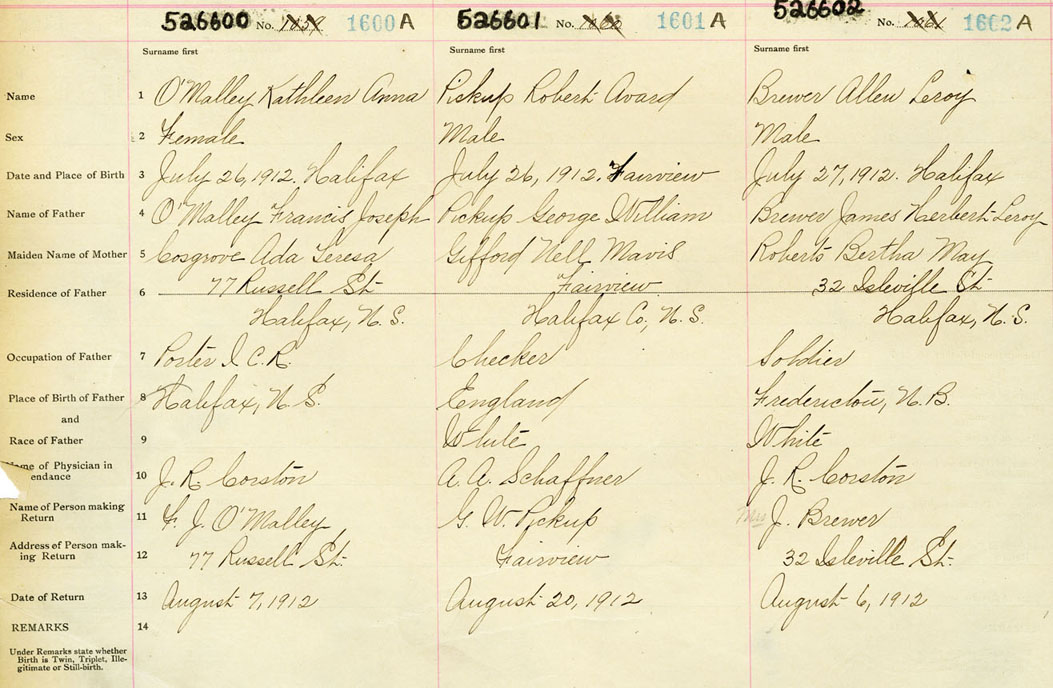 526600 No. 1600 A 526601 No. 1601 A 526602 No. 1602 A
Surname first Surname first Surname first
Name 1 O'Malley Kathleen Anna Pickup Robert Avard Brewer Allen Leroy
Sex 2 Female Male Male
Date and Place of Birth 3 July 26, 1912. Halifax July 26, 1912. Fairview July 27, 1912. Halifax
Name of Father 4 O'Malley Francis Joseph Pickup George William Brewer James Herbert Leroy
Maiden Name of Mother 5 Cosgrove Ada Teresa Gifford Nell Mavis Roberts Bertha May
Residence of Father 6 77 Russell St. Fairview 32 Isleville St
Halifax, N.S. Halifax Co, N.S. Halifax, N.S.
Occupation of Father 7 Porter I.C.R. Checker Soldier
Place of Birth of Father 8 Halifax, N.S. England Fredericton, N.B.
and
Race of Father 9 White White
Name of Physician in
endance 10 J. R. Corston A. A. Schaffner J. R. Corston
Name of Person making
Return 11 F. J. O'Malley G. W. Pickup Mrs J. Brewer
Address of Person mak-
ing Return 12 77 Russell St. Fairview 32 Isleville St.
Date of Return 13 August 7, 1912 August 20, 1912 August 6, 1912
REMARKS 14
Under Remarks state whether
Birth is Twin, Triplet, Ille-
gitimate or Still-birth.